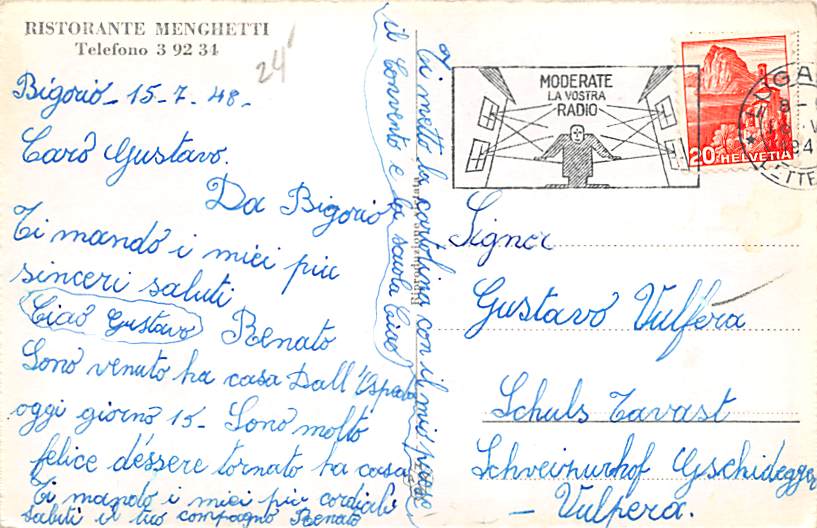 RISTORANTE MENGHETTI
Telefono 3 92 34
24
Bigorio - 15-7-48-
Caro Gustavo.
Da Bigorio
Ti mando i miei più
sinceri saluti
Ciao Gustavo Renato
Sono venuto ha casa Dall'Ospedale
oggi giorno 15- Sono molto
felice d'éssere tornato ha casa
Ti mando i miei più cordiali
saluti il tuo compagno Renato
Ti metto la cartolina con il mio paese
il convento e la scuola Ciao
MODERATE
LA VOSTRA
RADIO
20 HELVETIA
Signor
Gustavo Vulpera
Schuls Tarast
Schweizerhof Gschidegger
- Vulpera.